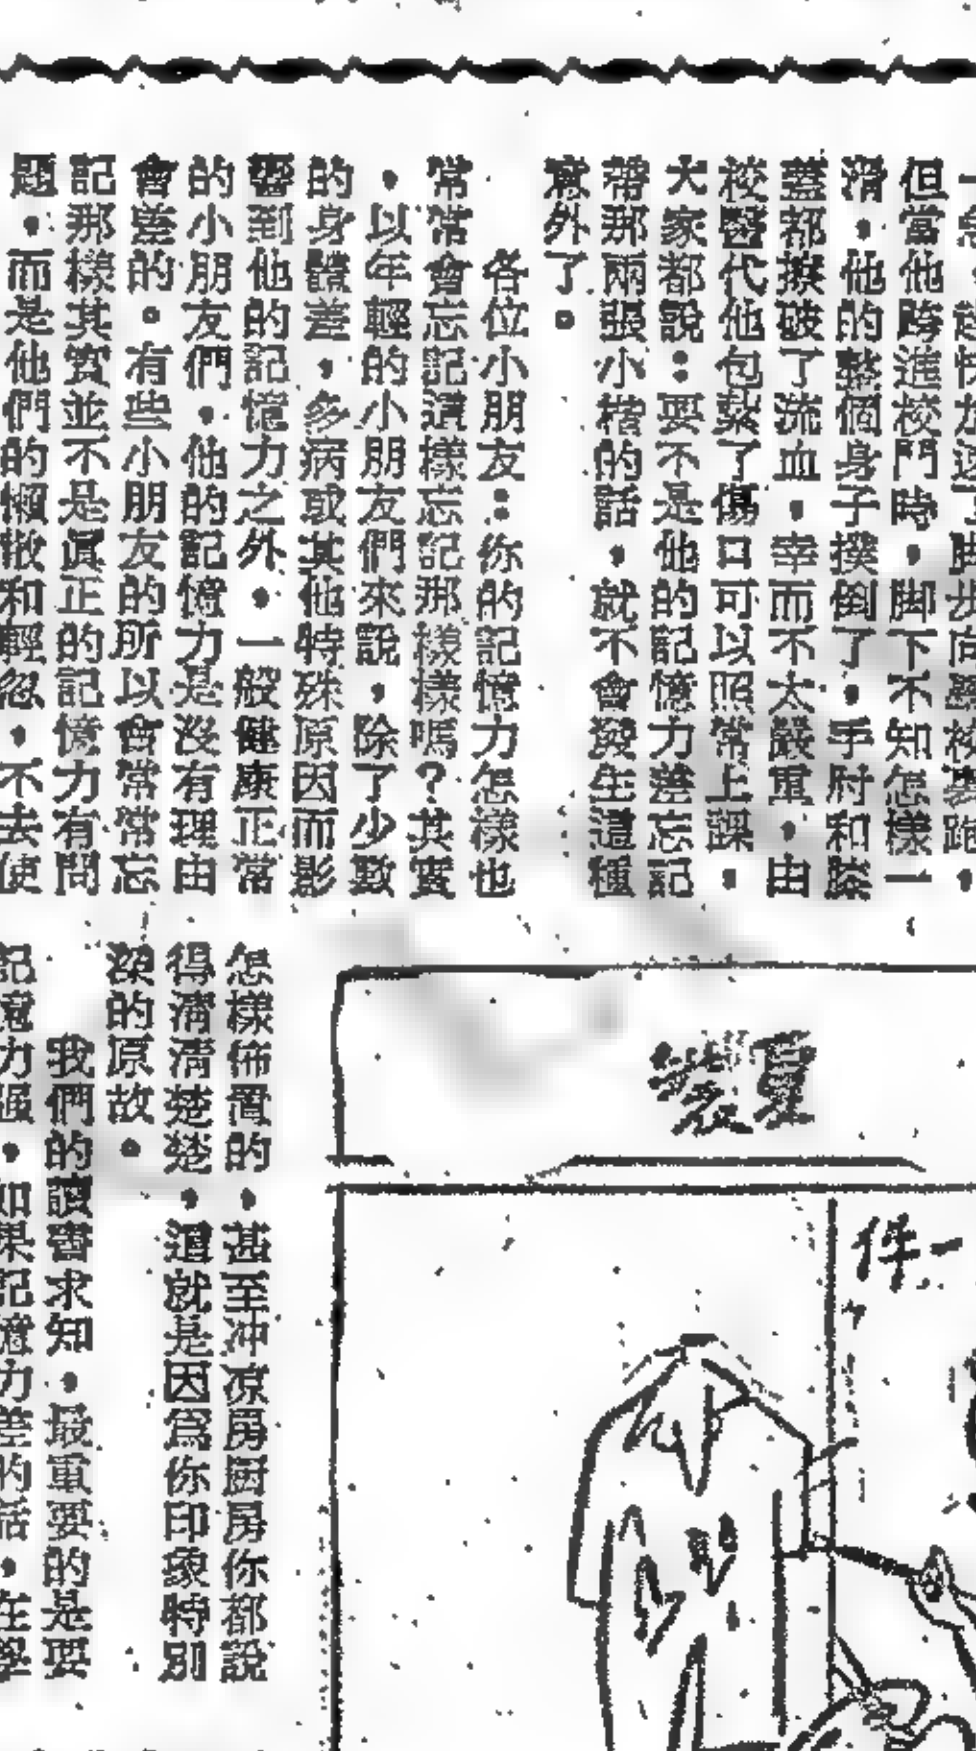 但當他跨進校門時，脚下不知怎樣一
滑，他的整個身子撲倒了，手肘和膝
蓋都擦破了流血，幸而不太嚴重，由
校醫代他包紮了傷口可以照常上課，
大家都說：要不是他的記憶力差忘記
帶那兩張小楷的話，就不會發生這種
意外了。
各位小朋友：你的記憶力怎樣也
常常會忘記這樣忘記那樣樣嗎？其實
，以年輕的小朋友們來說，除了少數
的身體差，多病或其他特殊原因而影
響到他的記憶力之外，一般健康正常
的小朋友們，他的記憶力是沒有理由
會差的。有些小朋友的所以會常常忘
記那樣其實並不是眞正的記憶力有問
題，而是他們的懶散和輕忽，不去使
怎樣佈置的，甚至冲凉房厨房你都說
得清清楚楚，這就是因爲你印象特別
深的原故。
我們的讀書求知，最重要的是要
記憶力強，如果記憶力差的話，在學
夏裝
一件